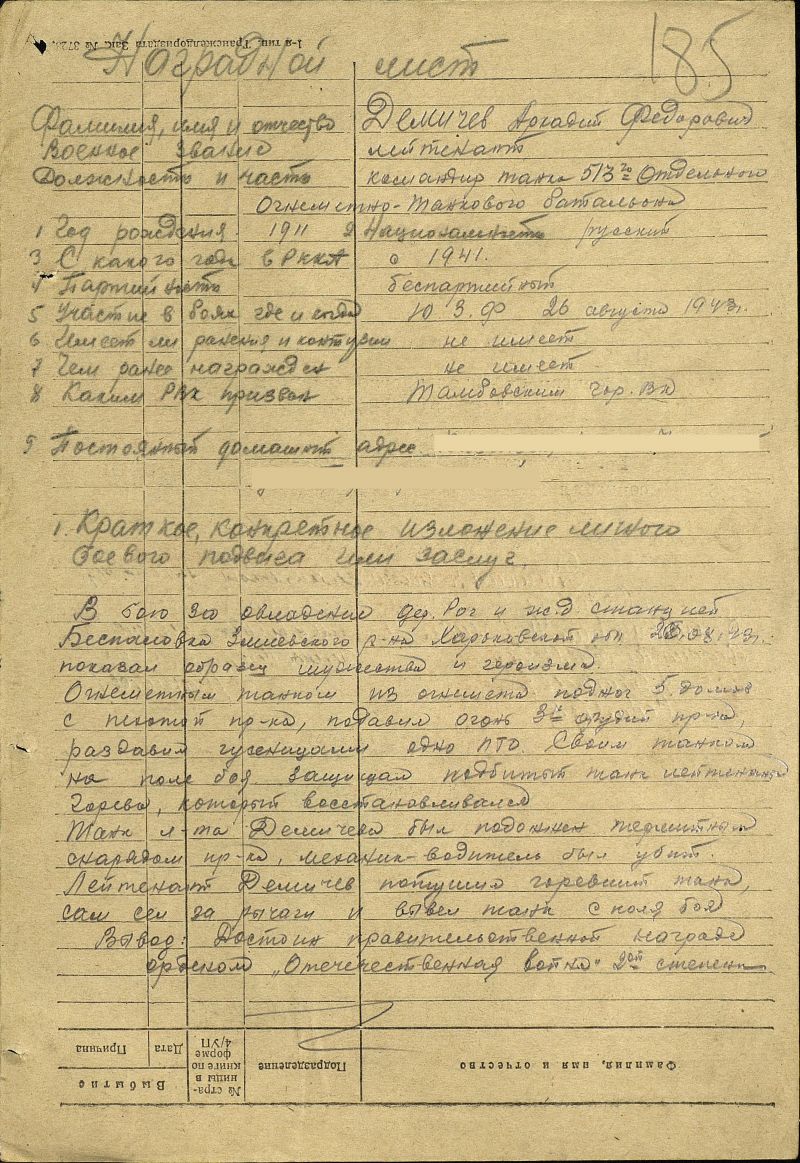 1-я тип. Трансжелдориздата Зак. № 372
185
Наградной лист
Фамилия, имя и отчество Демичев Аркадий Федорович
Военное звание лейтенант
Должность и часть командир танка 513го Отдельного
Огнеметно-Танкового батальона
1 Год рождения 1911 2 Национальность русский
3 С какого года в РККА с 1941.
4 Партийность беспартийный
5 Участие в боях где и когда Ю З. Ф 26 августа 1943г.
6 Имеет ли ранения и контузии не имеет
7 Чем ранее награжден не имеет
8 Каким РВК призван Тамбовским гор. ВК
9 Постоянный домашний адрес
1. Краткое, конкретное изложение личного
боевого подвига или заслуг.
В бою за овладение дер. Рог и ж.д. станцией
Беспаловка Змиевского р-на Харьковской обл 26.08.43г.
показал образец мужества и героизма.
Огнеметным танком из огнемета поджог 5 домов
с пехотой пр-ка, подавил огонь 3х орудий пр-ка,
раздавил гусеницами одно ПТО. Своим танком
на поле боя защищал подбитый танк лейтенанта
Горева, который восстанавливался
Танк л-та Демичева был подожжен термитным
снарядом пр-ка, механик-водитель был убит.
Лейтенант Демичев потушил горевший танк,
сам сел за рычаги и вывел танк с поля боя
Вывод: Достоин правительственной награде
орденом „Отечественная война" 2ой степени
Фамилия, имя и отчество
Подразделение
№ стра-
ницы в
книге по
форме
4/УП
Выбытие
Дата
Причина